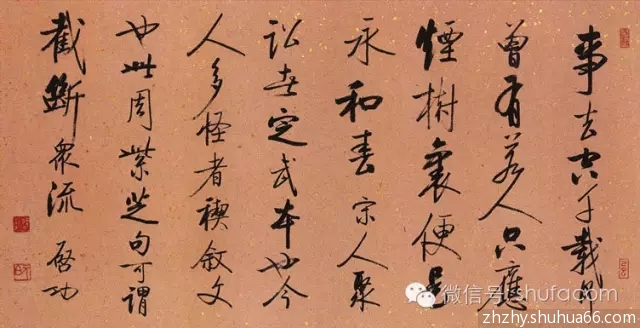 事去空千載
曾有若人只應
煙樹裏便是
永和春 宋人聚
訟在定武本也今
人多怪者禊敘文
也此周紫芝句可謂
截斷衆流 啓功
微信号:shufacom
zhzhy.shuhua66.com